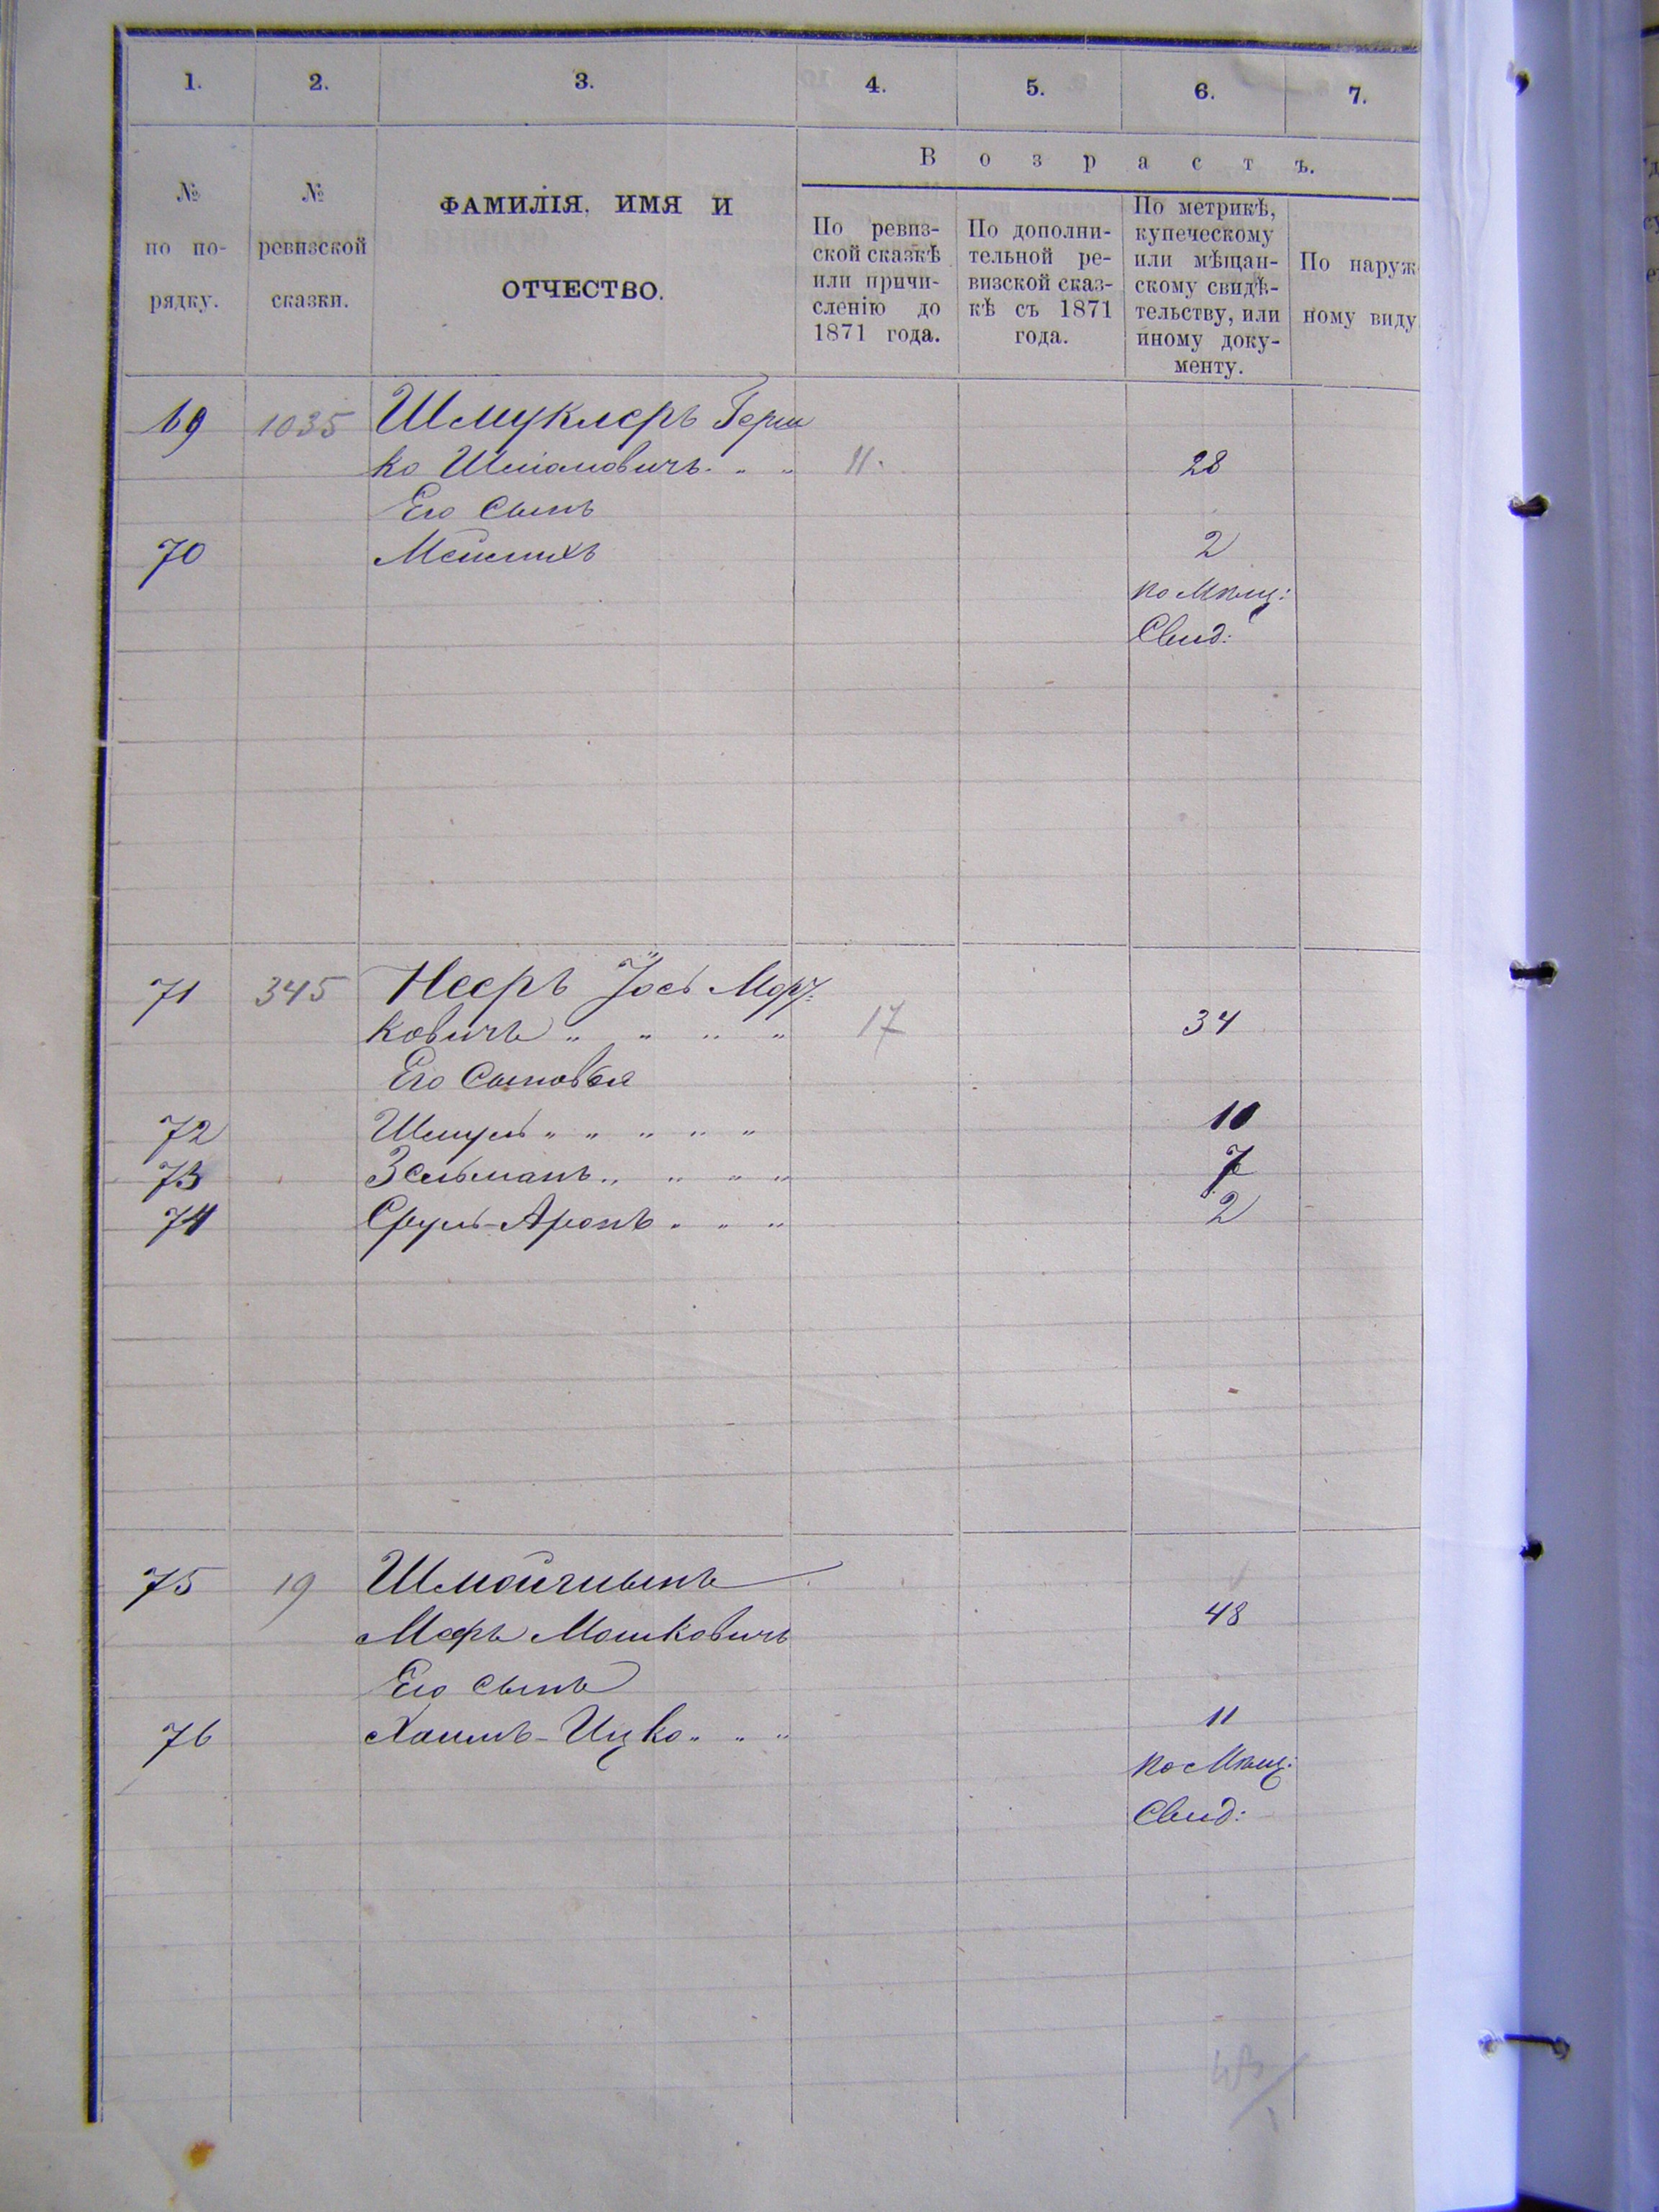 1. 2. 3. 4. 5. 6. 7.
Возрастъ.
№ по по- рядку.
№ ревизской сказки.
ФАМИЛІЯ, ИМЯ И
ОТЧЕСТВО.
По ревиз-
ской сказкѣ
или причи-
сленію до
1871 года.
По дополни-
тельной ре-
визской сказ-
кѣ съ 1871
года.
По метрикѣ,
купеческому
или мѣщан-
скому свидѣ-
тельству, или
иному доку-
менту.
По наруж
ному виду
69 1035 Шмуклеръ Герш
ко 11. 28
Его Сынъ
70 2
по Мѣщ:
Свид:
71 345 Нееръ Іось Морд-
ковичъ " " " " 17 34
Его Сыновья
72 Шмуль " " " " " 10
73 Зельманъ " " " " 7
74 Сруль-Аронъ " " " 2
75 19
Мошковичъ 48
Его Сынъ
76 Хаимъ-Ицко " " " 11
по Мѣщ:
Свид: